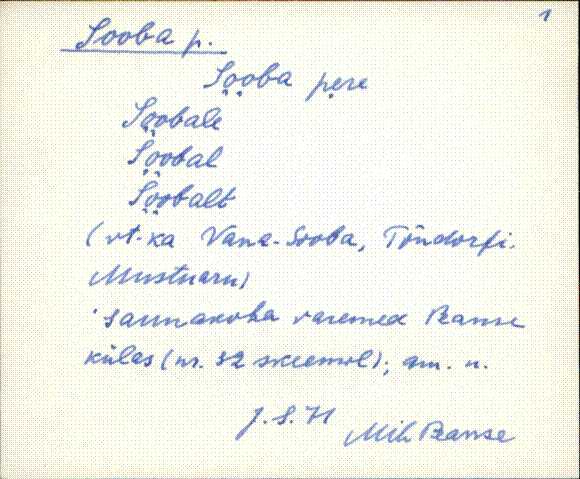 1
Sooba p.
Sọọba pẹre
Sọọbale
Sọọbal
Sọọbalt
(vt. ka Vana-Sooba, Tõndorfi,
Mustuaru)
saunakoha varemed Pranse
külas (nr. 32 skeemil); am. n.
J.S.H
Mih. Pranse